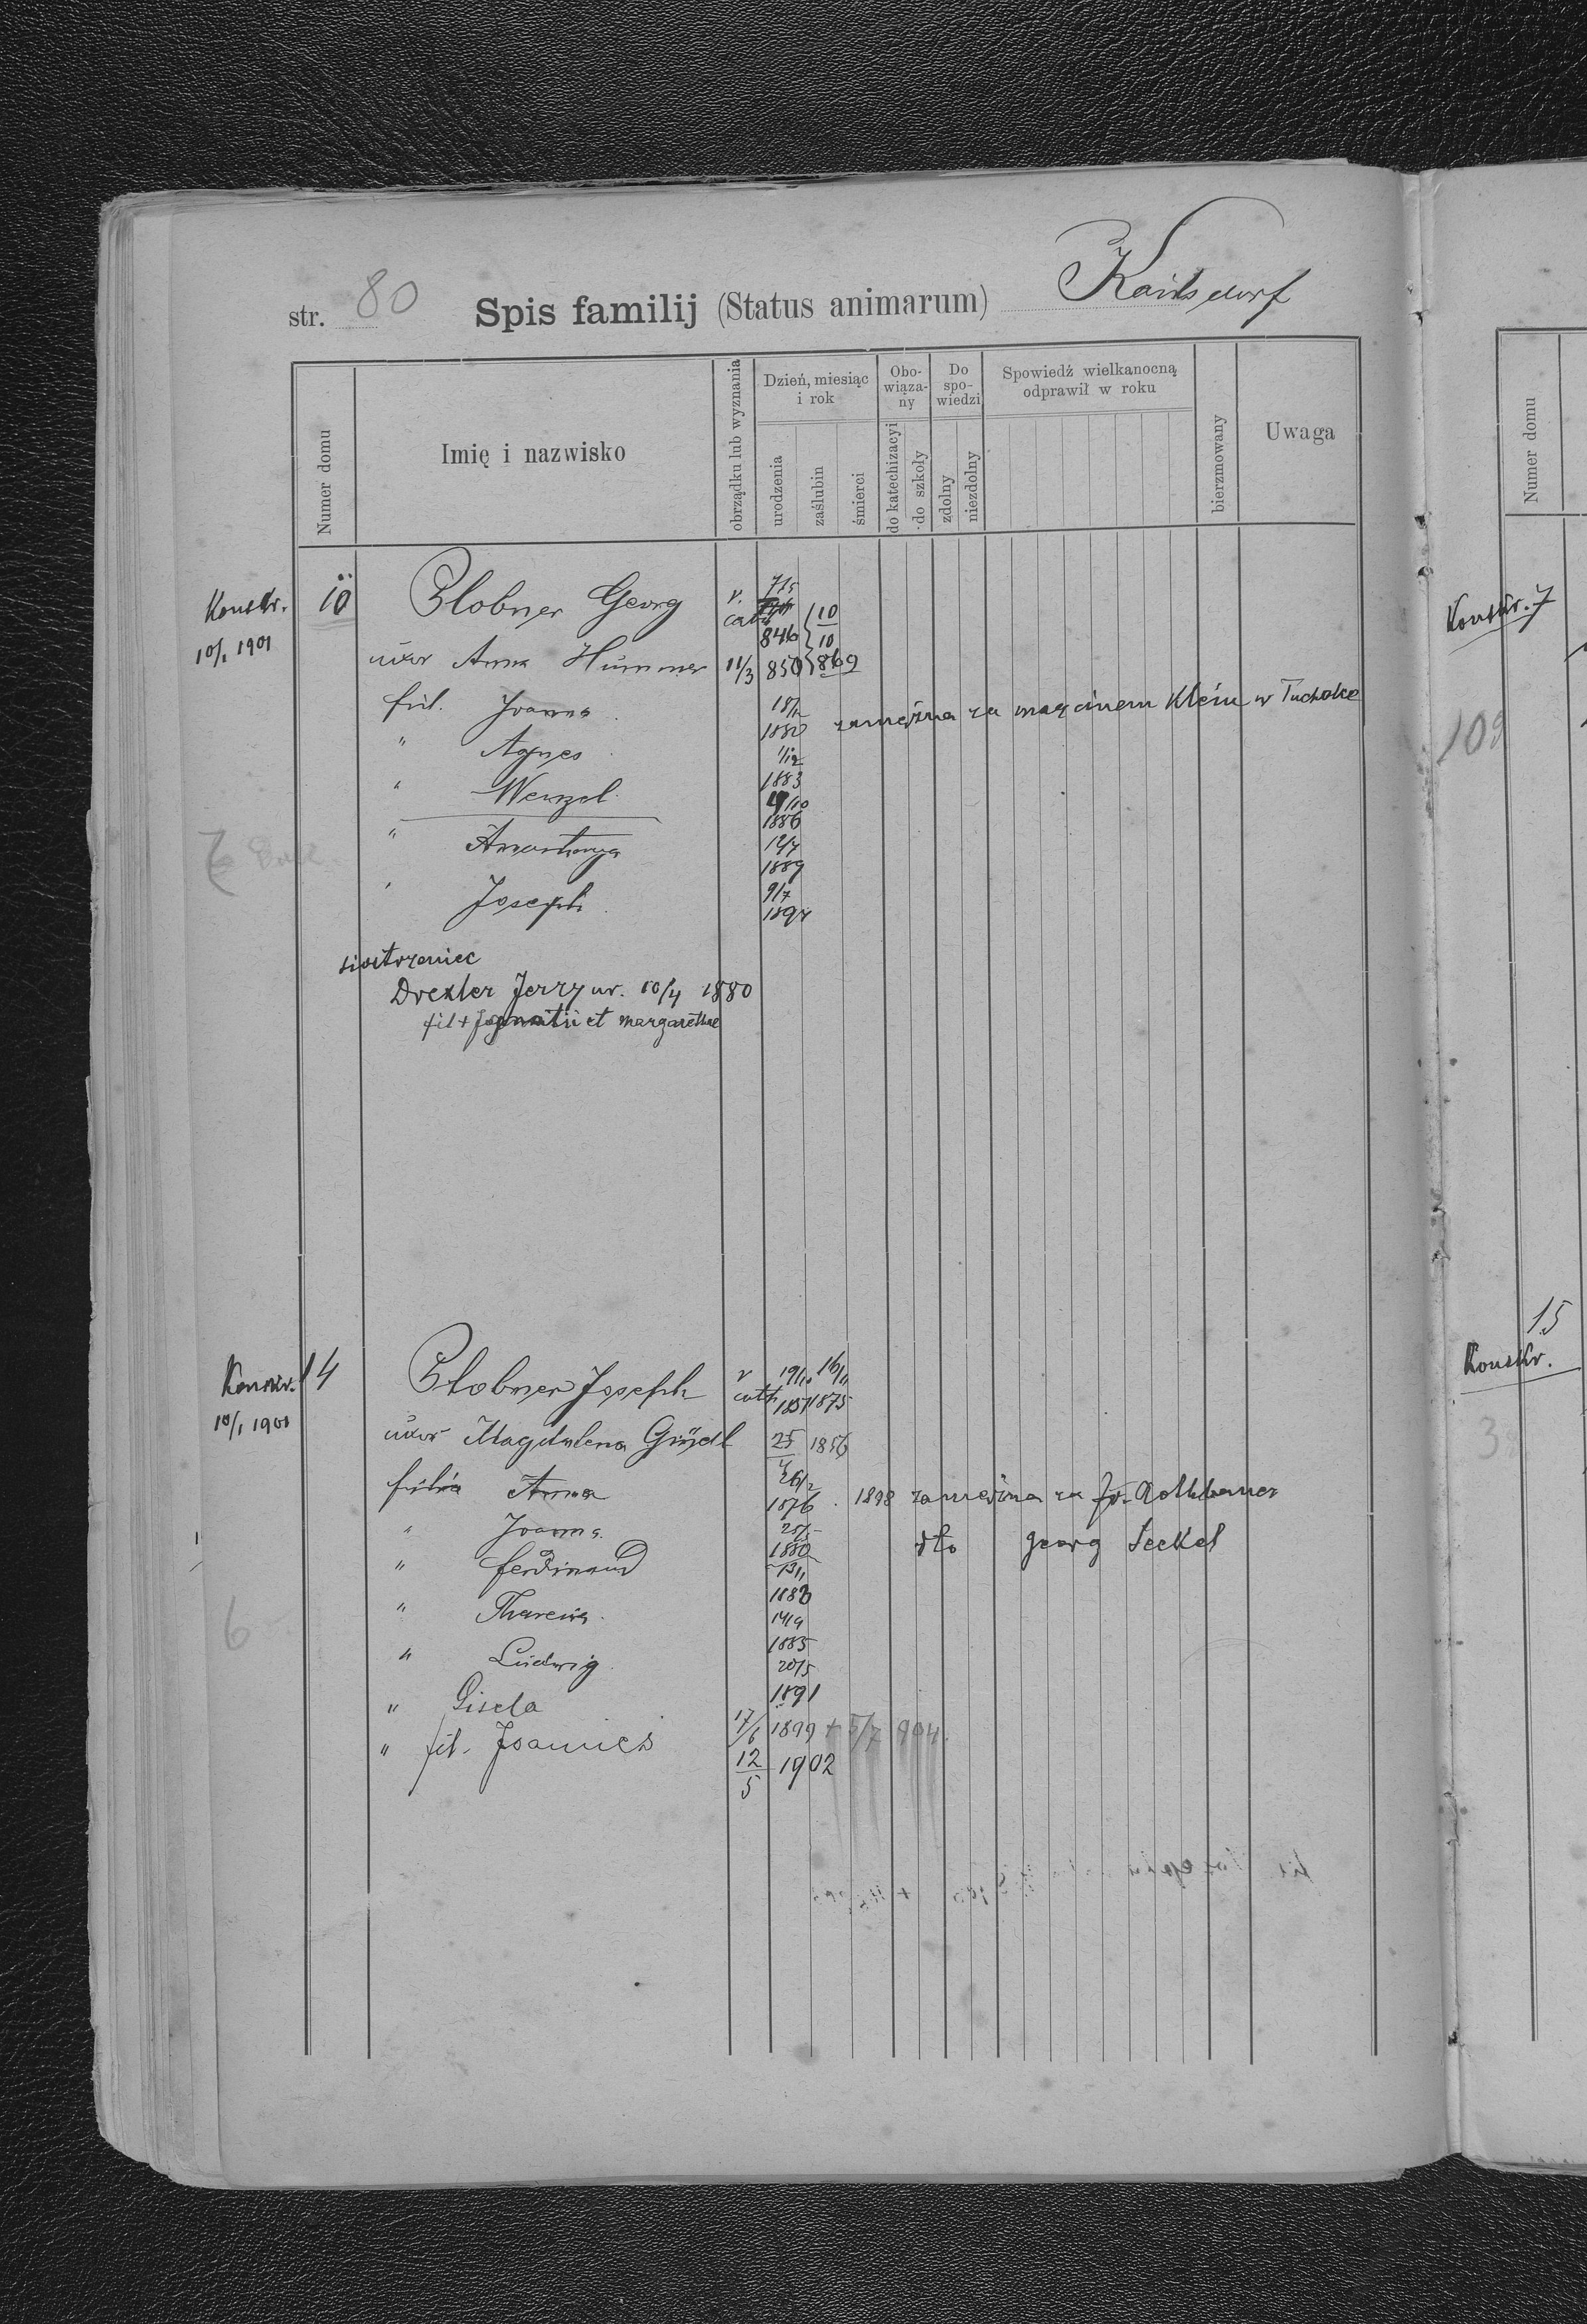 str. 80 Spis familij (Status animarum) Karlsdorf
Numer domu
Imię i nazwisko
obrządku lub wyznania
Dzień, miesiąc i rok
urodzenia
zaślubin
śmierci
Obo-
wiąza-
ny
do katechizacyi
do szkoły
Do
spo-
wiedzi
zdolny
niezdolny
Spowiedź wielkanocną
odprawił w roku
bierzmowany
Uwaga
Konskr. 10 Blobner Georg r. cath 7/5 846 10/10
10/1 1901
uxor Anna Hummer 11/3 850 869
fil. Joanna 18/12 1880 zamężna za Marcinem Klein w Tucholce
" Agnes 1/12 1883
" Wenzel 4/10 1886
" Anastazya 12/7 1889
" Joseph 9/7 1894
siostrzeniec
Drexler Jerzy ur. 10/4 1880
fil + Ignatii et Margarethae
Konskr. 14 Blobner Joseph r cath 19/10 1851 16/11 1875
10/1 1901
uxor Magdalena 25/4 1856
filia Anna 26/2 1876 1898 zamężna za Rothbauer
" Joanna 25/5 1880 dto Georg Seckel
" Ferdinand 1883
" Theresia 14/9 1885
" Ludwig 20/5 1891
" Gisela 17/6 1899 + 5/7 904
" fil. Joannes 12/5 1902
6
Numer domu
Konskr. 7
109
15
Konskr.